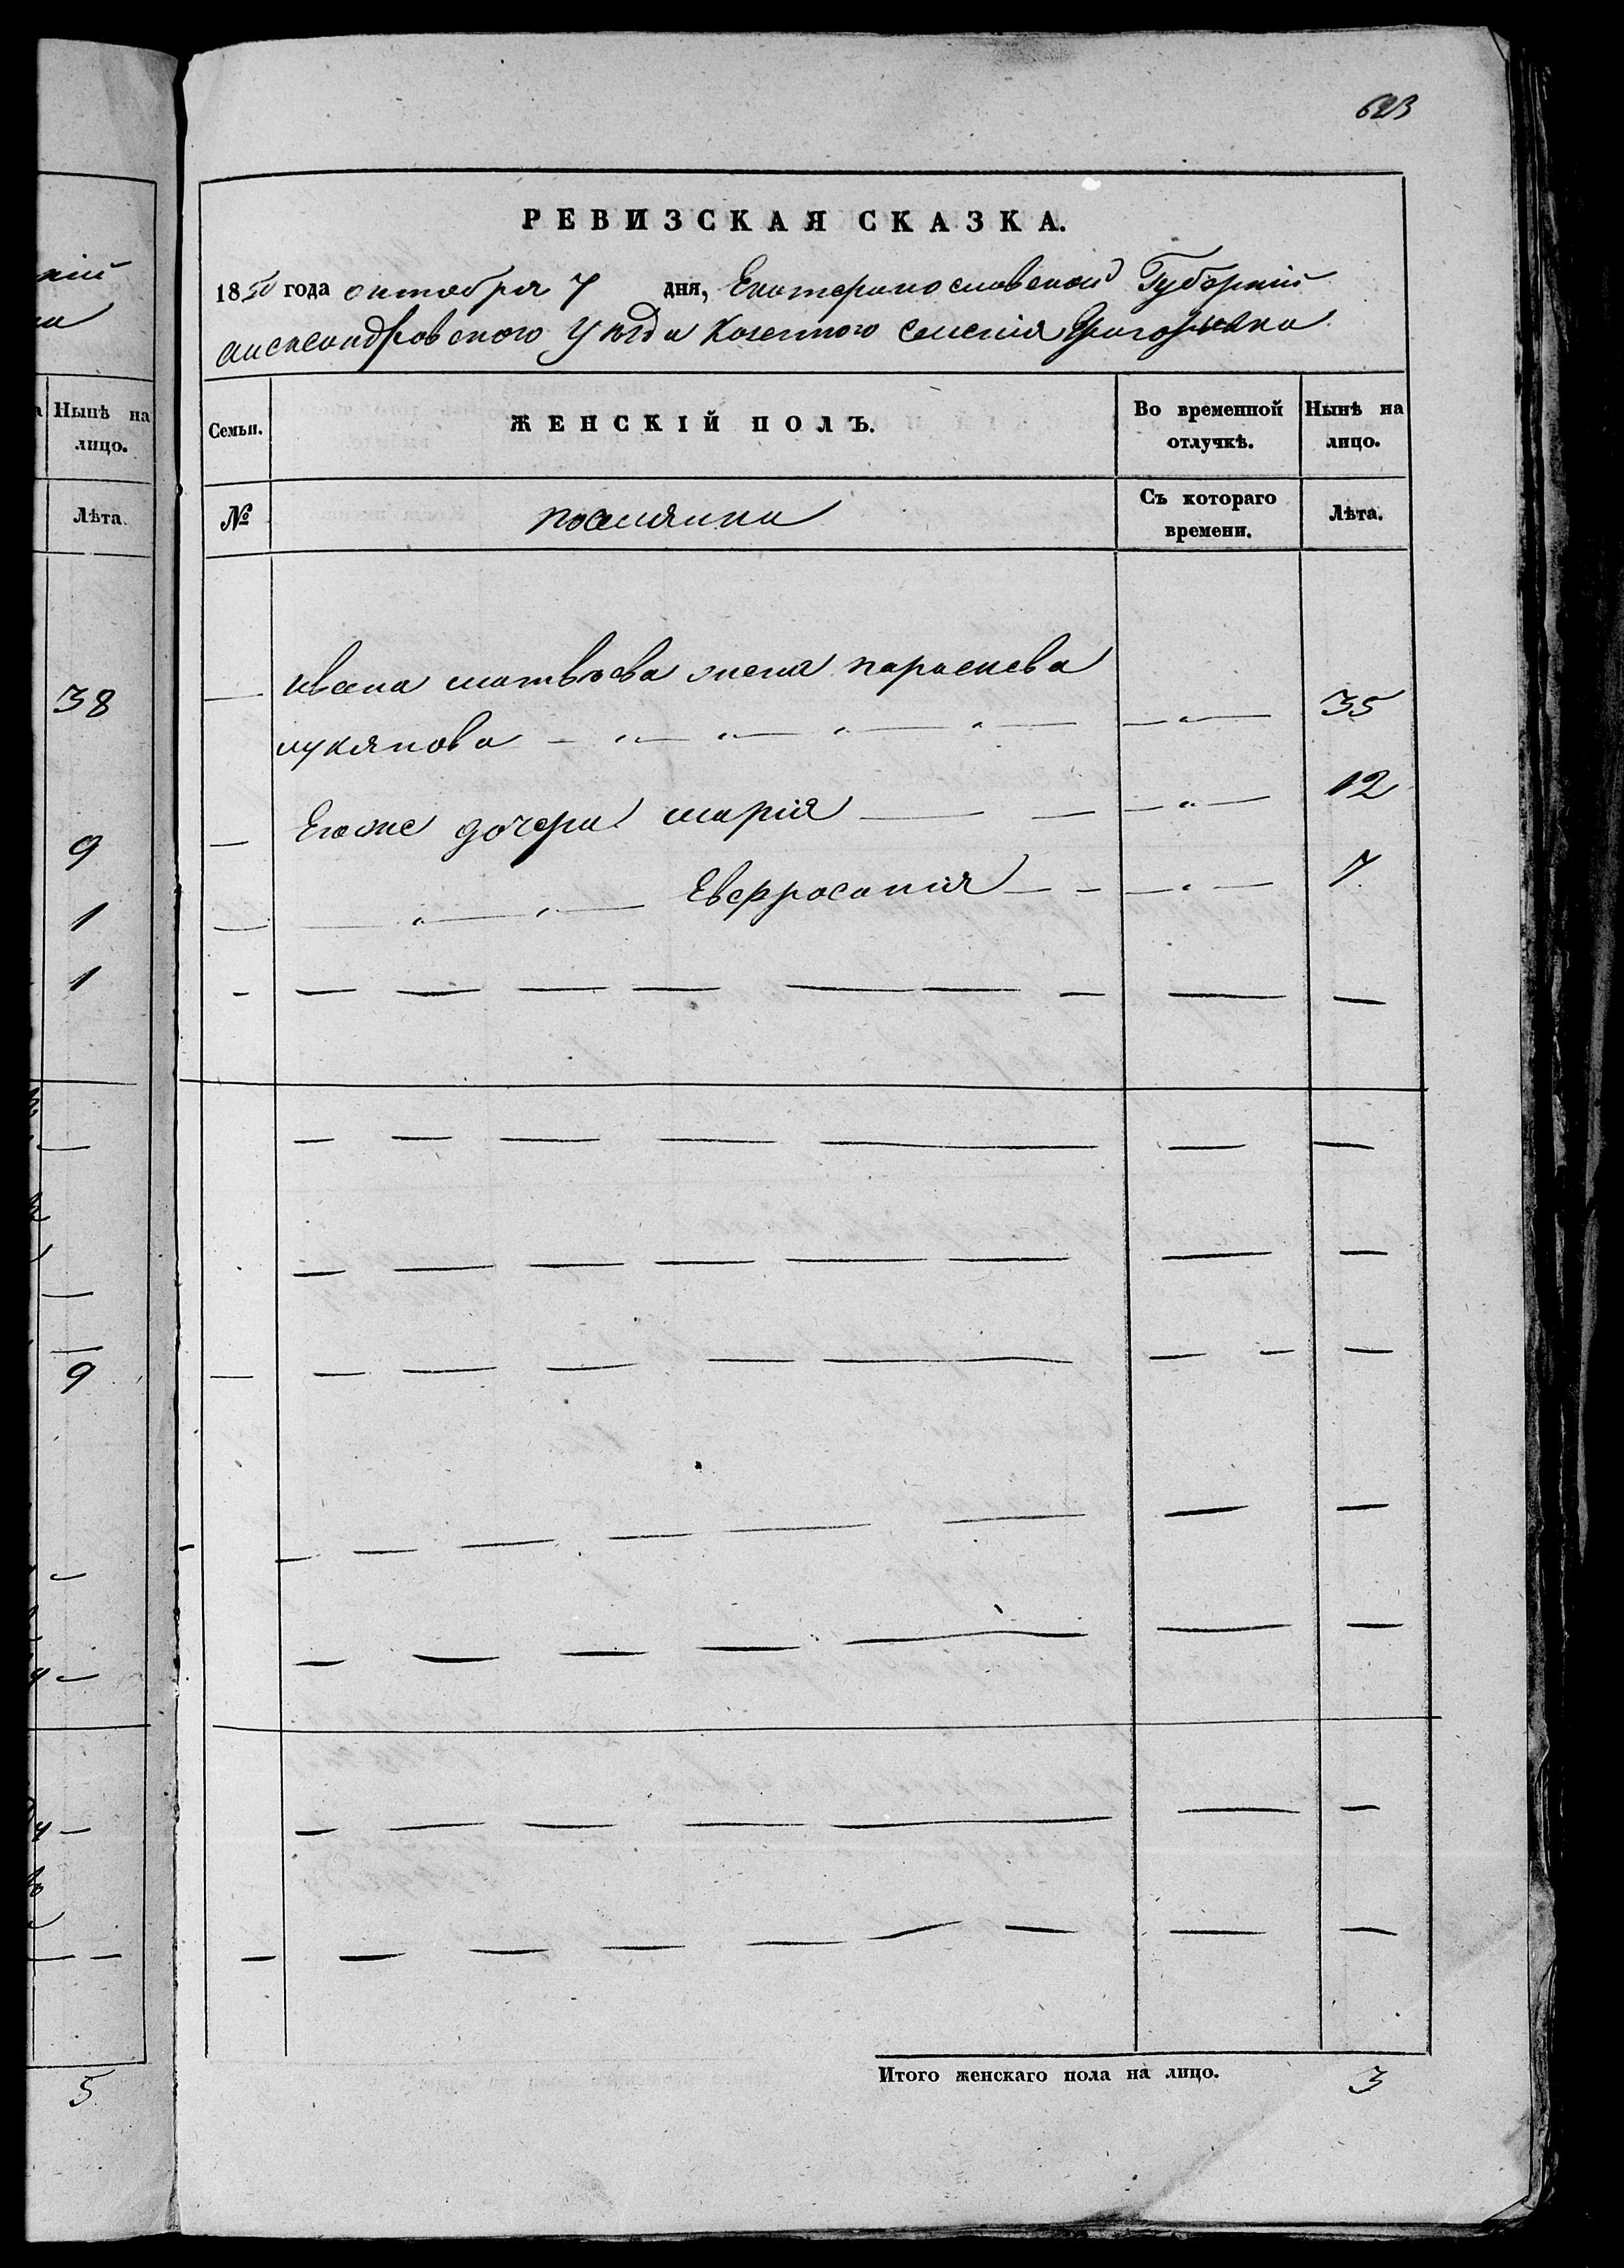 623
РЕВИЗСКАЯ СКАЗКА.
1850 года октября 7 дня, Екатеринославской Губернiи
александровского Уѣзда Казенного селенiя Григорьевка
Семьи.
ЖЕНСКІЙ ПОЛЪ.
Во временной отлучкѣ.
Нынѣ на лицо.
№
поселянки
Съ котораго времени.
Лѣта.
ивана матвѣева жена параскева
лукянова — „ — „ — „ — „ — — „ — 35
Егоже дочери марiя — — — „ — 12
— „ — „ — Евфросинiя — — — „ — 7
Итого женскаго пола на лицо. 3
Нынѣ на лицо.
Лѣта.
38
9
1
1
9
5